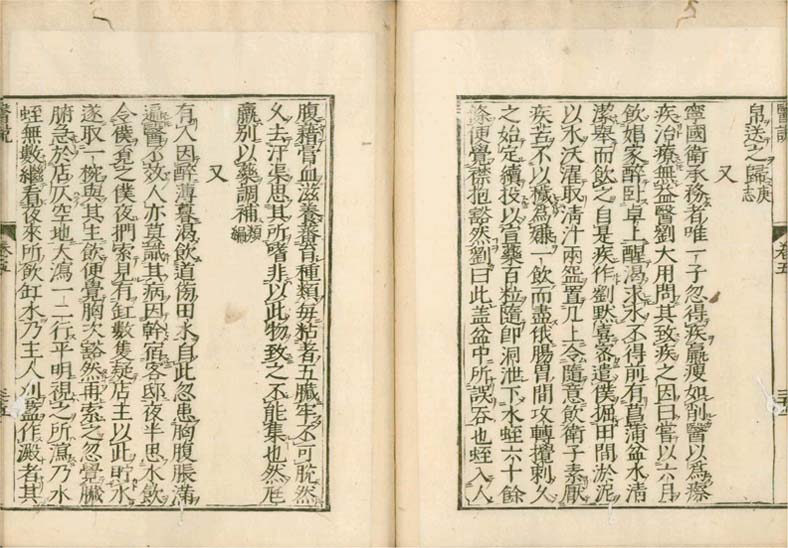 醫說　卷五
帛送之歸庚志
又
寧國衛承務者唯一子忽得疾羸瘦如削醫以爲瘵
疾治療無益醫劉大用問其致疾之因曰嘗以六月
飲娼家醉卧卓上醒渴求水不得前有菖蒲盆水清
潔舉而飲之自是疾作劉默喜密遣僕掘田間淤泥
以水沃濯取清汁兩盌置几上令隨意飲衛子素厭
疾苦不以穢爲嫌一飲而盡俄腸胃間攻轉攪刺久
之始定續投以宣藥百粒隨卽洞泄下水蛭六十餘
條便覺襟抱豁然劉曰此蓋盆中所誤吞也蛭入人
腹藉膏血滋養蕃育種類每粘着五臟牢不可脫然
久去汙渠思其所嗜非以此物致之不能集也然尫
羸別以藥調補類編
又
有人因醉薄暮渴飲道傍田水自此忽患胸腹脹滿
遍醫不效人亦莫識其病因幹宿客邸夜半思水飲
令僕覓之僕夜捫索見有缸數隻疑店主以此貯水
遂取一椀與其主飲便覺胸次豁然再索之忽覺臟
腑急於店仄空地大瀉一二行平明視之所瀉乃水
蛭無數繼看夜來所飲缸水乃主人刈藍作澱者其
醫說　卷五